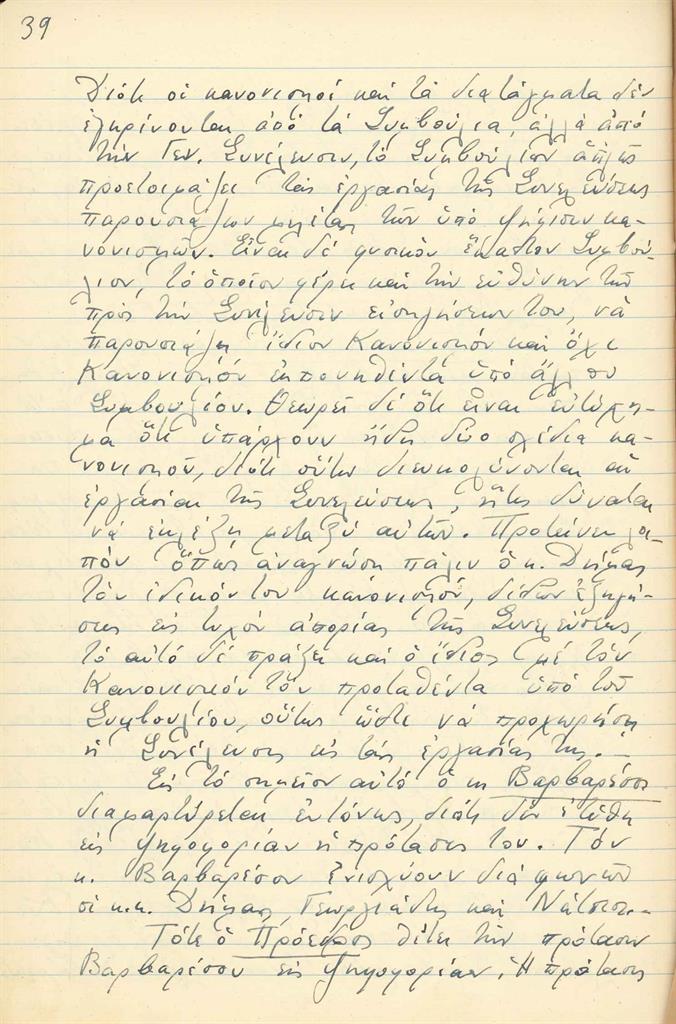 39
Διότι οἱ κανονισμοί καί τά διατάγματα δέν
ἐγκρίνονται ἀπό τά Συμβούλια, ἀλλά ἀπό
τήν Γεν. Συνέλευσιν, τό Συμβούλιον ἁπλῶς
προετοιμάζει τάς ἐργασίας τῆς Συνελεύσεως
παρουσιάζων μελέτας τῶν ὑπό ψήφισιν κα-
νονισμῶν. Εἶναι δέ φυσικόν ἕκαστον Συμβού-
λιον, τό ὁποῖον φέρει καί τήν εὐθύνην τῶν
πρός τήν Συνέλευσιν εἰσηγήσεών του, νά
παρουσιάζῃ ἴδιον Κανονισμόν καί ὄχι
Κανονισμόν ἐκπονηθέντα ὑπό ἄλλου
Συμβουλίου. Θεωρεῖ δέ ὅτι εἶναι εὐτύχη-
μα ὅτι ὑπάρχουν ἤδη δύο σχέδια κα-
νονισμοῦ, διότι οὕτω διευκολύνονται αἱ
ἐργασίαι τῆς Συνελεύσεως, ἥτις δύναται
νά ἐκλέξῃ μεταξύ αὐτῶν. Προτείνει λοι-
πόν ὅπως ἀναγνώσῃ πάλιν ὁ κ. Δήμας
τόν ἰδικόν του κανονισμόν, δίδων ἐξηγή-
σεις εἰς τυχόν ἀπορίας τῆς Συνελεύσεως,
τό αὐτό δέ πράξει καί ὁ ἴδιος μέ τόν
Κανονισμόν τόν προταθέντα ὑπό τοῦ
Συμβουλίου, οὕτως ὥστε νά προχωρήσῃ
ἡ Συνέλευσις εἰς τάς ἐργασίας της.-
Εἰς τό σημεῖον αὐτό ὁ κ. Βαρβαρέσος
διαμαρτύρεται ἐντόνως, διότι δέν ἐτέθη
εἰς ψηφοφορίαν ἡ πρότασίς του. Τόν
κ. Βαρβαρέσον ἐνισχύουν διά φωνῶν
οἱ κ.κ. Δήμας, Γεωργιάδης καί
Τότε ὁ Πρόεδρος θέτει τήν πρότασιν
Βαρβαρέσου εἰς ψηφοφορίαν. Ἡ πρότασις